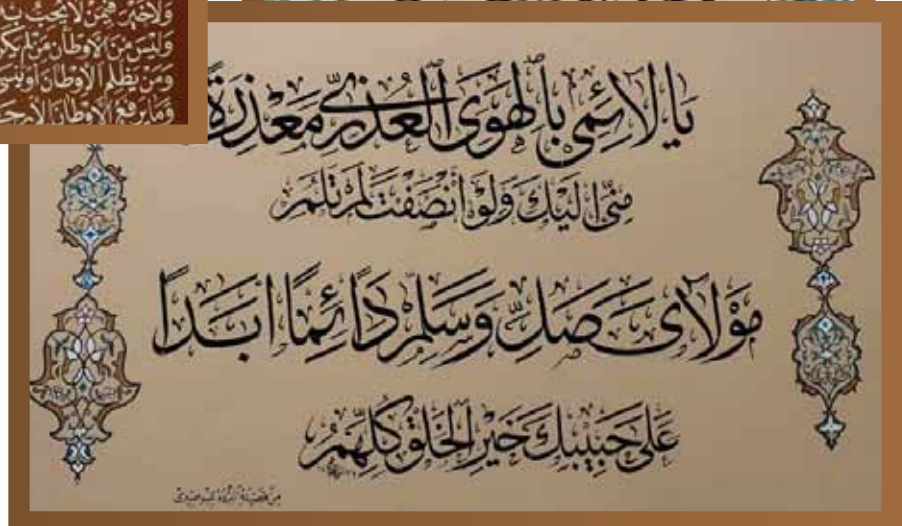 ولا خير فيمن لا يحب
وليس من الأوطان من لم يكن
ومن يظلم الأوطان أو ينسى
وما يرفع الأوطان إلا
يَا لَائِمِي بِالْهَوَى الْعُذْرِيِّ مَعْذِرَةً
مِنِّي إِلَيْكَ وَلَوْ أَنْصَفْتَ لَمْ تَلُمِ
مَوْلَايَ صَلِّ وَسَلِّمْ دَائِمًا أَبَدًا
عَلَى حَبِيبِكَ خَيْرِ الْخَلْقِ كُلِّهِمِ
من قصيدة البردة للبوصيري